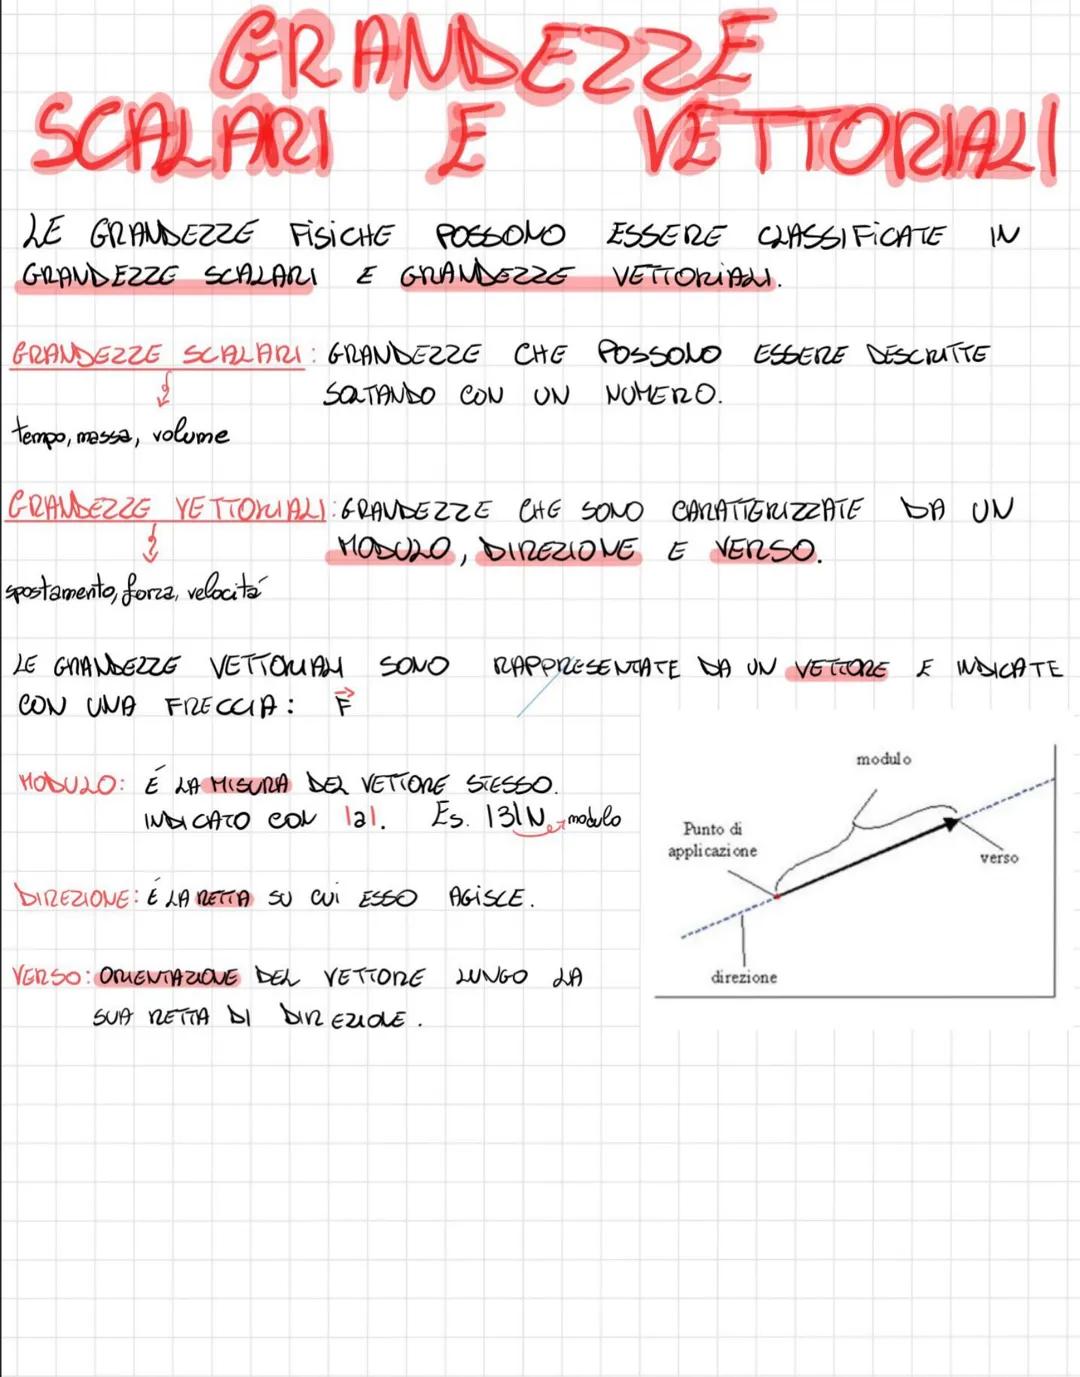 GRANDEZZE
SCALARI E VETTORIALI
LE GRANDEZZE FISICHE POSSONO ESSERE CLASSIFICATE IN
GRANDEZZE SCALARI E GRANDEZZE VETTORIALI.
GRANDEZZE SCALARI: GRANDEZZE CHE POSSONO ESSERE DESCRITTE
SOLTANDO CON UN NUMERO.
tempo, massa, volume
GRANDEZZE VETTORIALI: GRANDEZZE CHE SONO CARATTERIZZATE DA UN
MODULO, DIREZIONE E VERSO.
spostamento, forza, velocitá
LE GRANDEZZE VETTORIALI SONO RAPPRESENTATE DA UN VETTORE E INDICATE
CON UNA FRECCIA: F⃗
MODULO: É LA MISURA DEL VETTORE STESSO.
INDICATO CON |a|. Es. |3|N → modulo
DIREZIONE: É LA RETTA SU CUI ESSO AGISCE.
VERSO: ORIENTAZIONE DEL VETTORE LUNGO LA
SUA RETTA DI DIREZIOLE.
modulo
Punto di
applicazione
verso
direzione